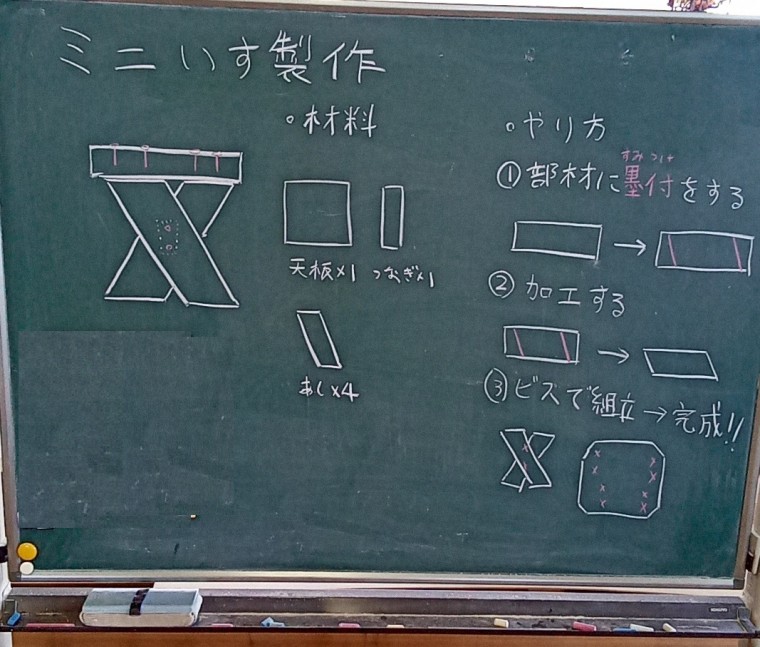 ミニいす製作
・材料
天板×1
つなぎ×1
あし×4
・やり方
①部材に墨付をする
すみつけ
②加工する
③ビスで組立→完成!!